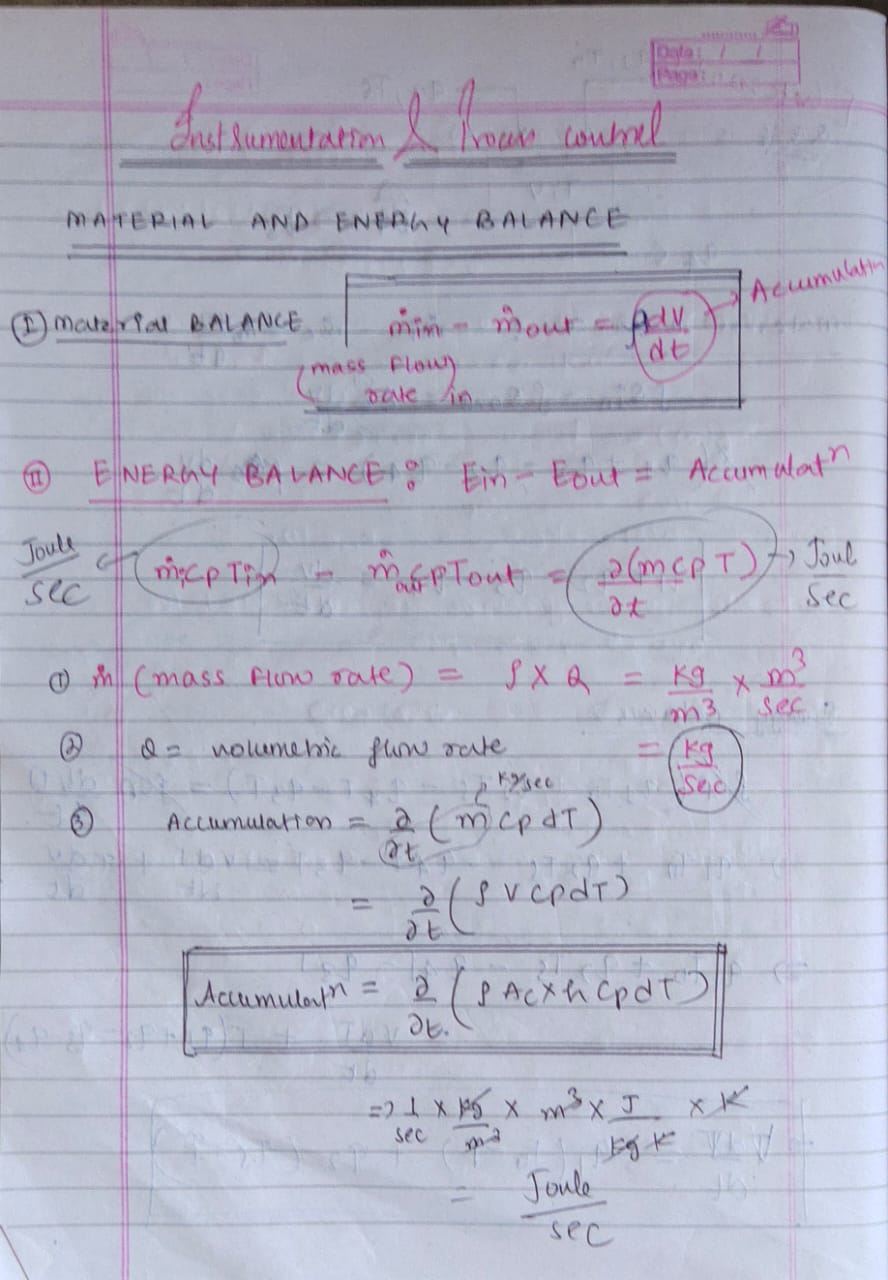 Date: / /
Page:
Instrumentation & Process control
MATERIAL AND ENERGY BALANCE
Ⓘ Material BALANCE ṁin - ṁout = ρdV/dt → Accumulatn
(mass flow rate in)
Ⓘ̲Ⓘ ENERGY BALANCE : Ein - Eout = Accumulatn
Joule/sec ← ṁiCpTin - ṁoutCpTout = ∂(mCpT)/∂t → Joul/sec
① ṁ (mass flow rate) = ρ x Q = Kg/m³ x m³/sec.
② Q = volumetric flow rate = kg/sec
kg/sec
③ Accumulation = ∂/∂t (ṁ CpdT)
= ∂/∂t (ρVCpdT)
Accumulatn = ∂/∂t. (ρAc x h CpdT)
=> 1/sec x kg/m³ x m³ x J/kg K x K
= Joule/sec